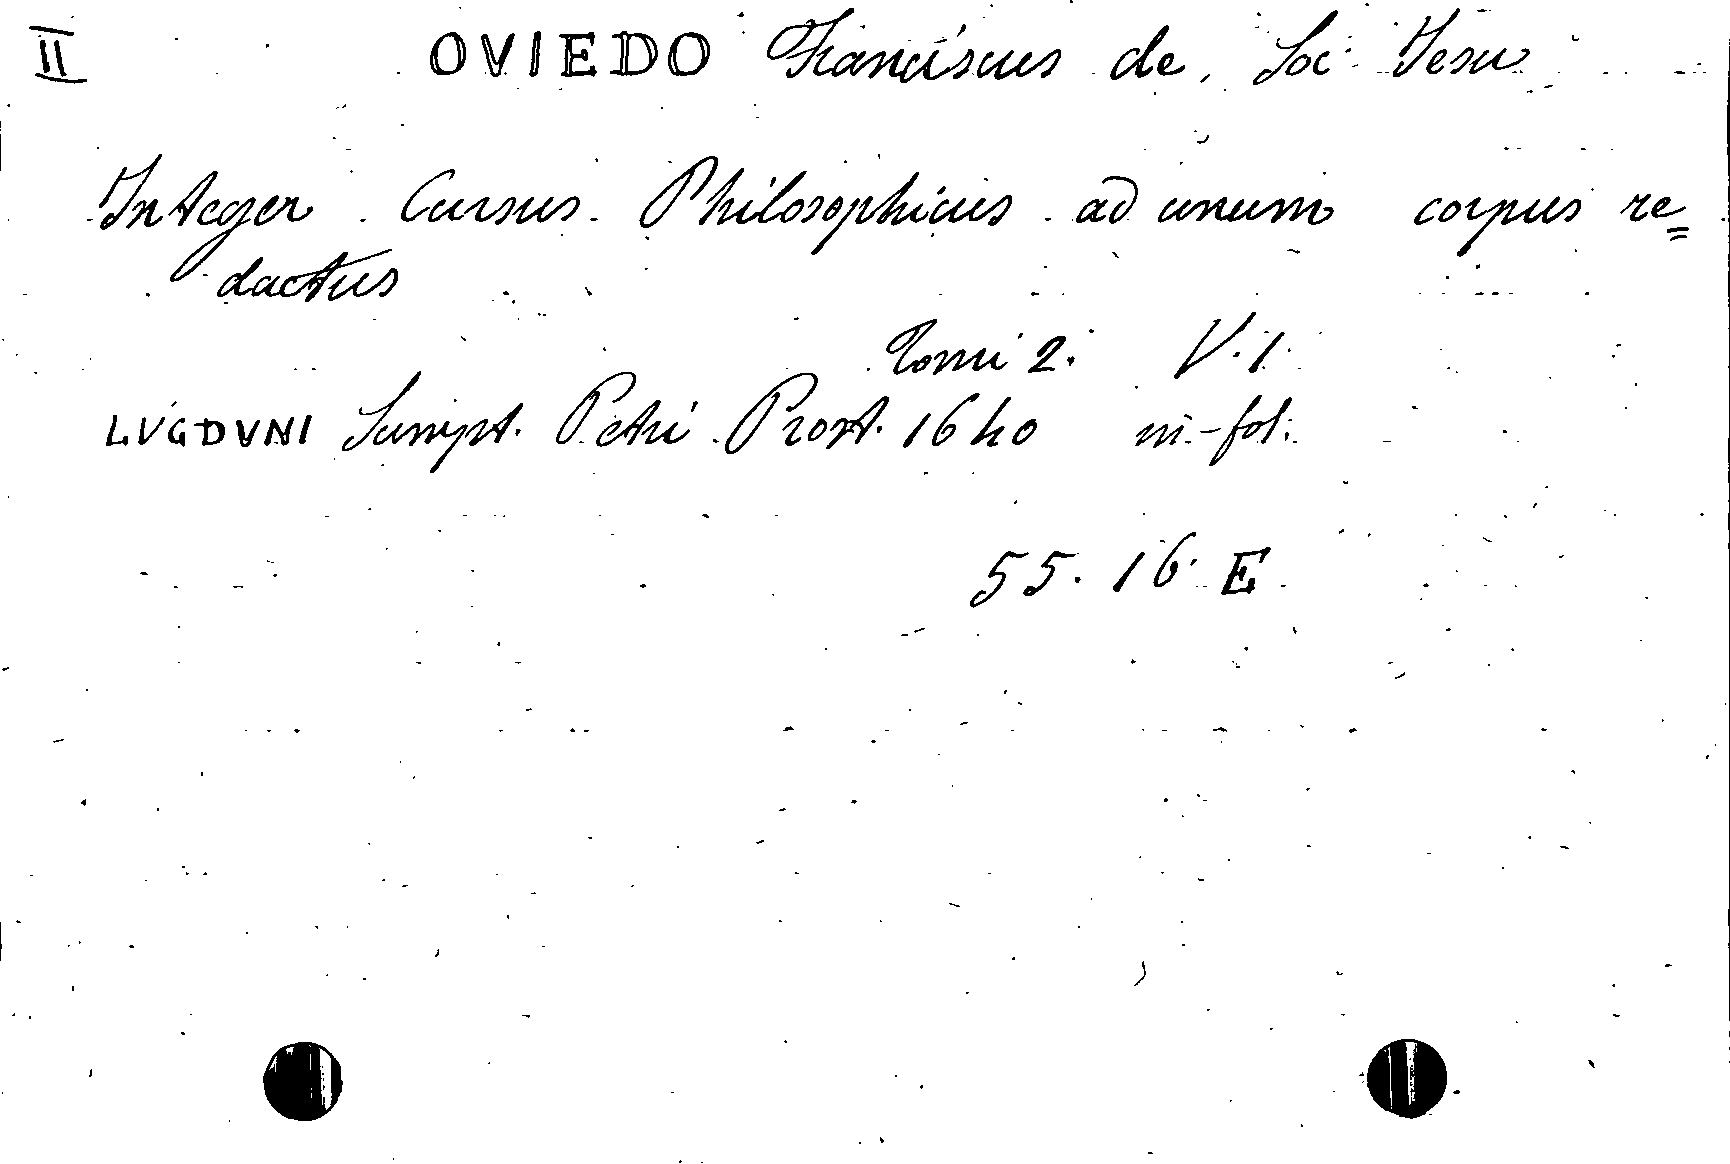 II OVIEDO Franciscus de, Soc. Iesu
Integer Cursus Philosophicus ad unum corpus re=
dactus
Tomi 2. V. 1.
LVGDVNI Sumpt. Petri Prost. 1640 in-fol.
55. 16. E